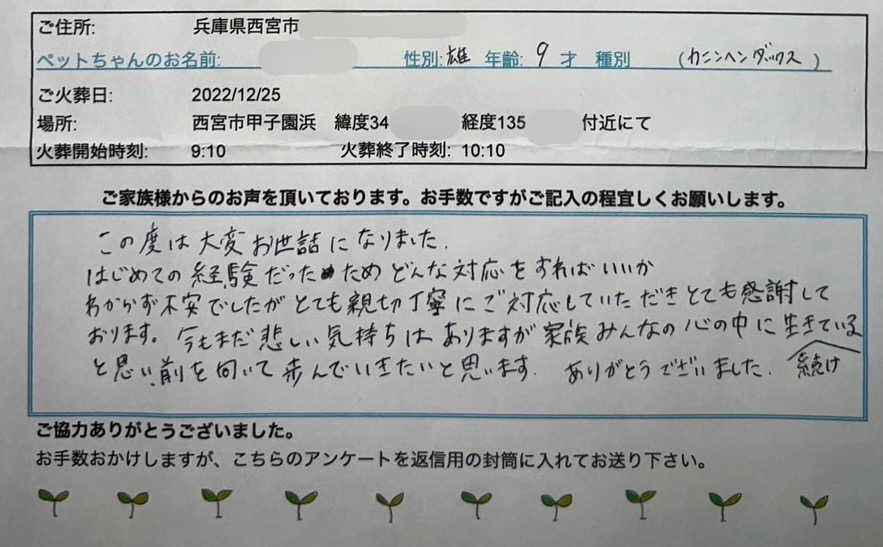 ご住所: 兵庫県西宮市
ペットちゃんのお名前: 性別:雄 年齢: 9 才 種別 (カニンヘンダックス)
ご火葬日: 2022/12/25
場所: 西宮市甲子園浜 緯度34 経度135 付近にて
火葬開始時刻: 9:10 火葬終了時刻: 10:10
ご家族様からのお声を頂いております。お手数ですがご記入の程宜しくお願いします。
この度は大変お世話になりました.
はじめての経験だったためどんな対応をすればいいか
わからず不安でしたがとても親切丁寧にご対応していただきとても感謝して
おります。今もまだ悲しい気持ちはありますが家族みんなの心の中に生きている
と思い、前を向いて歩んでいきたいと思います. ありがとうございました. 続け
ご協力ありがとうございました。
お手数おかけしますが、こちらのアンケートを返信用の封筒に入れてお送り下さい。